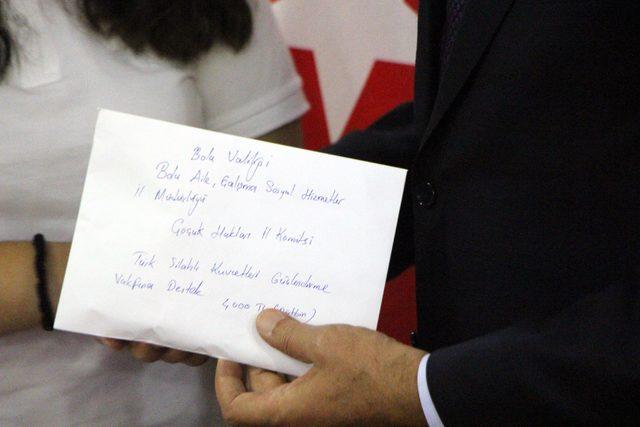 Bolu Valiliği
Bolu Aile, Çalışma Sosyal Hizmetler
İl Müdürlüğü
Çocuk Hakları İl Komitesi
Türk Silahlı Kuvvetleri Güçlendirme
Vakfına Destek
4000 TL